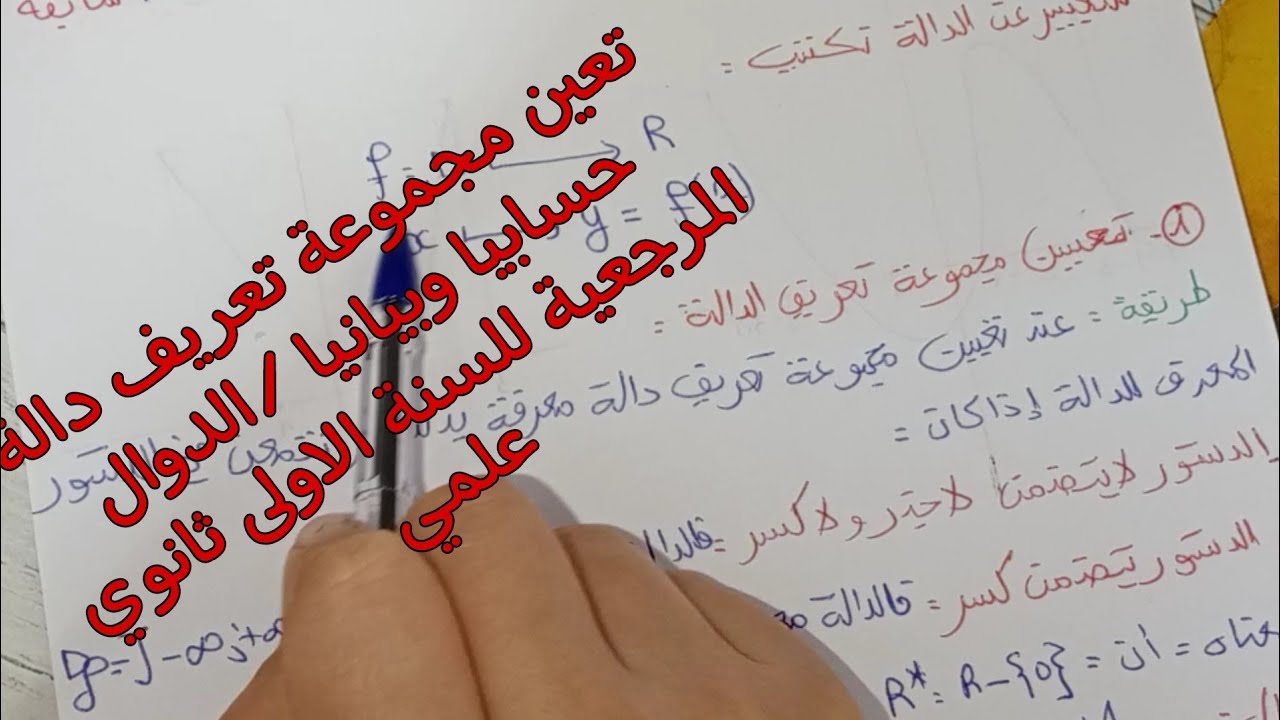 تعين مجموعة تعريف دالة
حسابيا وبيانيا /الدوال
المرجعية للسنة الاولى ثانوي
علمي
عن الدالة تكتب =
f = R
y = f(x)
1- تعيين مجموعة تعريف الدالة =
طريقة = عند تعيين مجموعة تعريف دالة معرفة
المعرف للدالة إذا كان =
الدستور لا يتضمن لا جذر ولا كسر =
Df=]-∞;+∞
الدستور يتضمن كسر = فالدالة
أن = R* = R-{0}